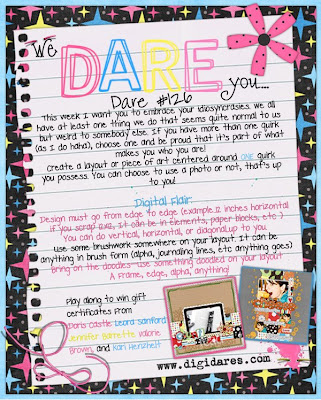 We
DARE
you...
Dare #126
This week I want you to embrace your idiosyncrasies. we all
have at least one thing we do that seems quite normal to us
but weird to somebody else. If you have more than one quirk
(as I do haha), choose one and be proud that it's part of what
makes you who you are!
Create a layout or piece of art centered around ONE quirk
you possess. You can choose to use a photo or not, that's up
to you!
Digital Flair:
Design must go from edge to edge (example 12 inches horizontal
if you scrap 12x12, it can be in elements, paper blocks, etc )
You can do vertical, horizontal, or diagonal...up to you.
Use some brushwork somewhere on your layout. It can be
anything in brush form (alpha, journaling lines, etc anything goes)
Bring on the doodles- use something doodled on your layout.
A frame, edge, alpha, anything!
Play along to win gift
certificates from
Doris Castle, Deara Sanford,
Jennifer Barrette, Valorie
Brown, and Kari
www.digidares.com